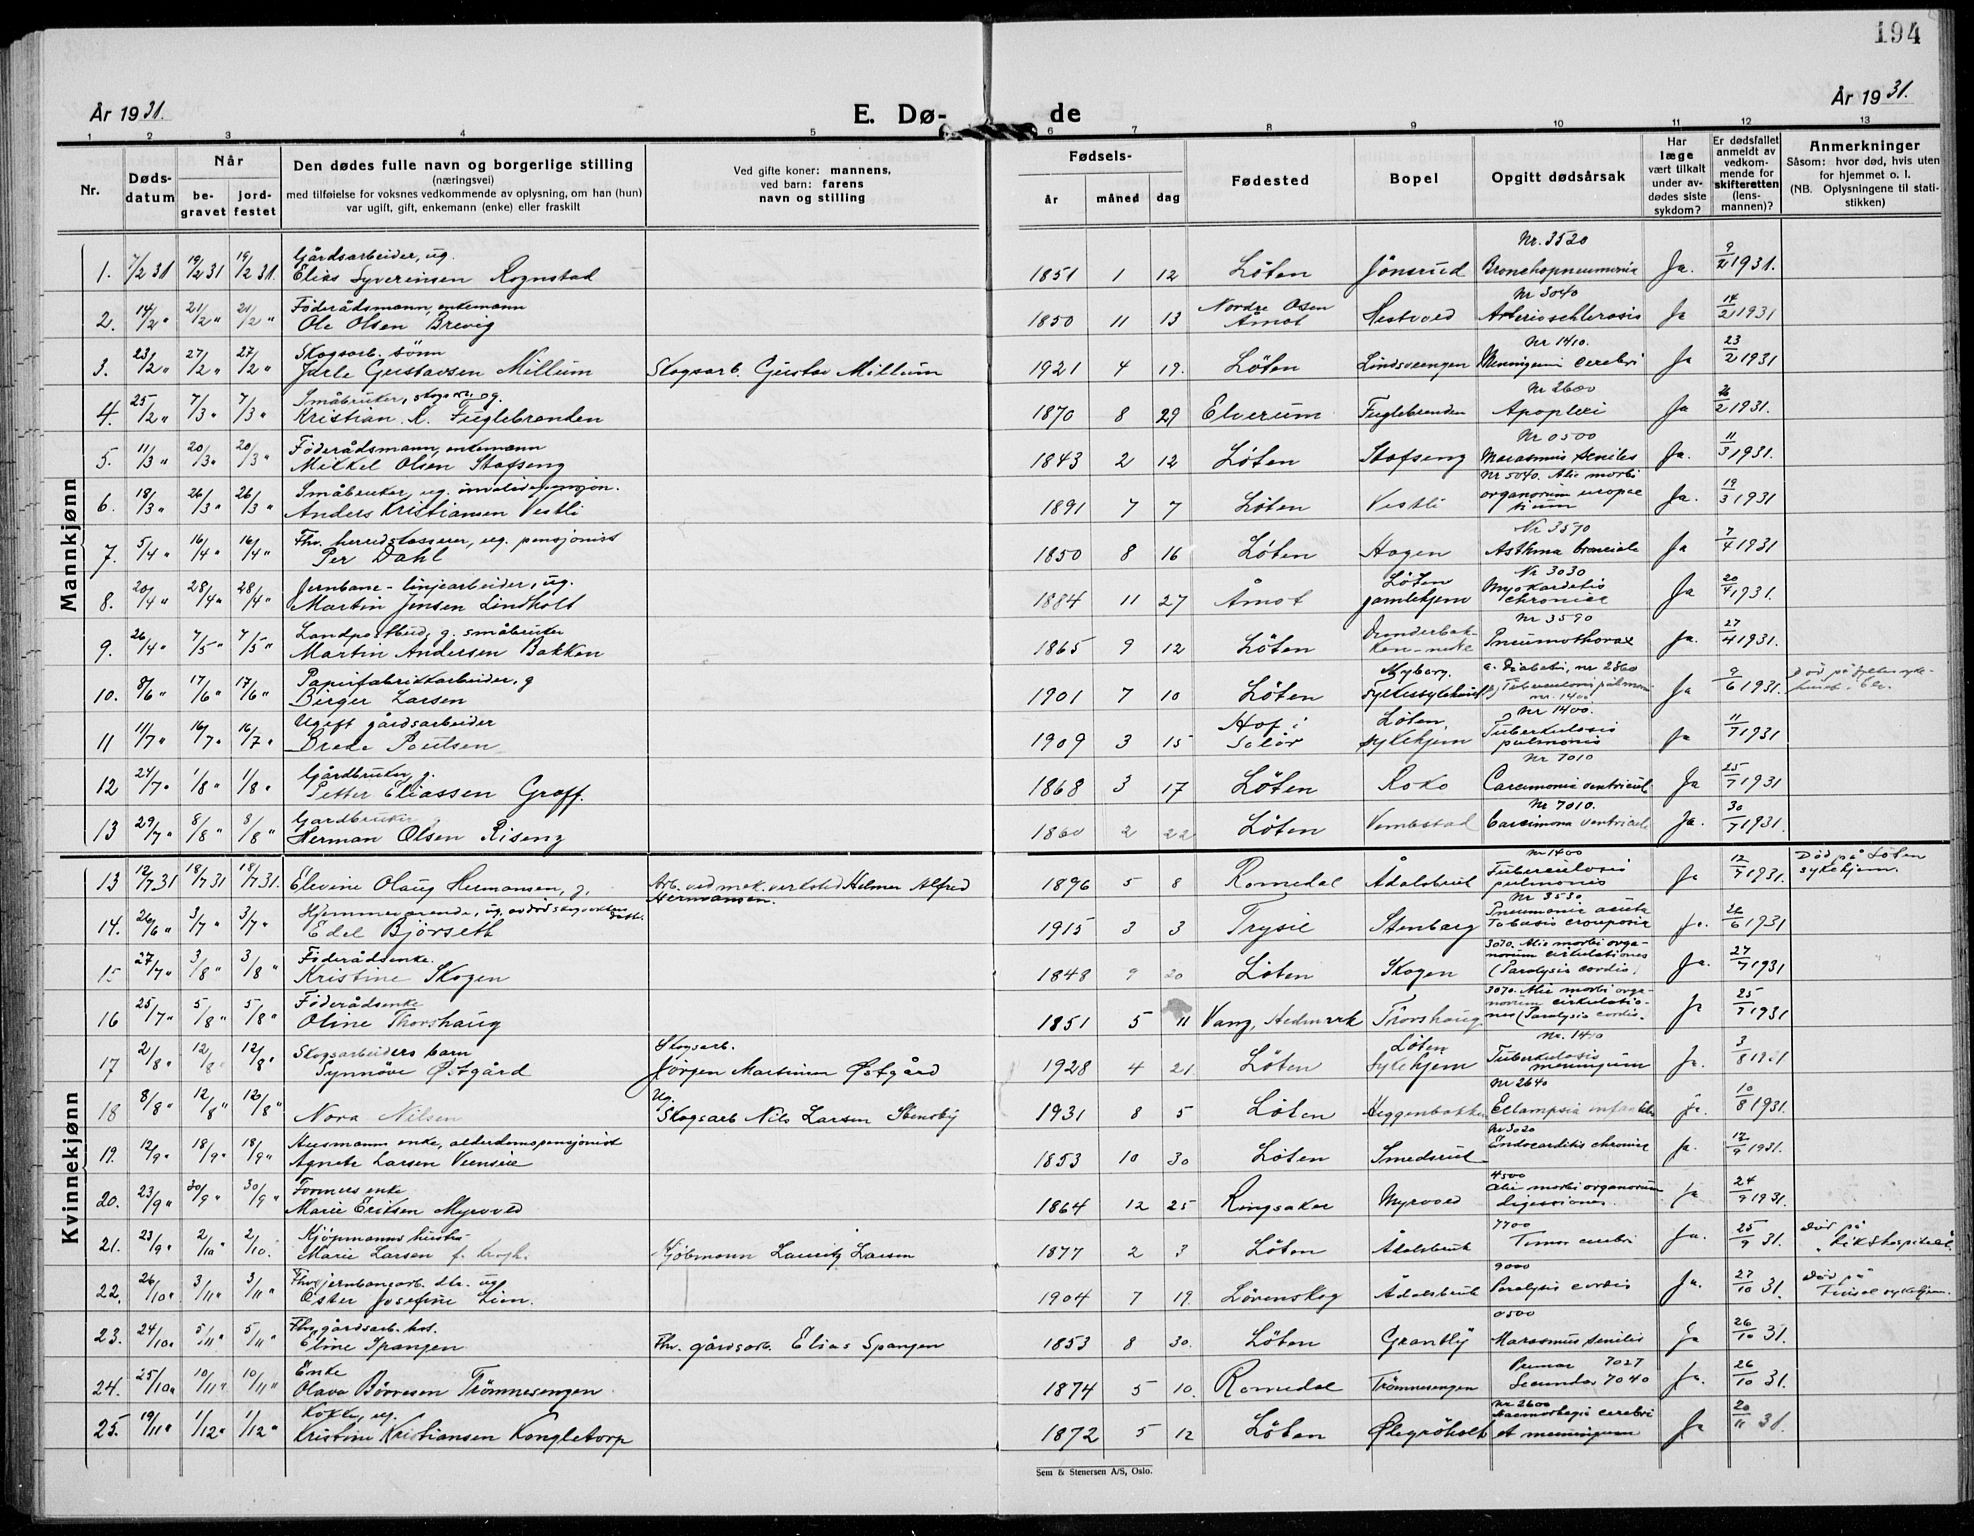 194
År 1931.
E. Dø-
de
År 1931.
1 2 3 4 5 6 7 8 9 10 11 12 13
Nr.
Døds-
datum
Når
be-
gravet
jord-
festet
Den dødes fulle navn og borgerlige stilling
(næringsvei)
med tilføielse for voksnes vedkommende av oplysning, om han (hun)
var ugift, gift, enkemann (enke) eller fraskilt
Ved gifte koner: mannens,
ved barn: farens
navn og stilling
Fødsels-
år
måned
dag
Fødested
Bopel
Opgitt dødsårsak
Har
læge
vært tilkalt
under av-
dødes siste
sykdom?
Er dødsfallet
anmeldt av
vedkom-
mende for
skifteretten
(lens-
mannen)?
Anmerkninger
Såsom: hvor død, hvis uten
for hjemmet o. l.
(NB. Oplysningene til stati-
stikken)
Mannkjønn
Gårdsarbeider, ug. Nr. 3520
1. 7/2 31 19/2 31 19/2 31. Elias Syverinsen Rognstad 1851 1 12 Löten Jönsrud Bronchopneumonia Ja. 9/2 1931.
Föderådsmann, enkemann Nordre Osen Nr 3040
2. 14/2 " 21/2 " 21/2 " Ole Olsen Brevig 1850 11 13 Åmot Hestvold Arterioschlerosis Ja 14/2 1931
Skogsarb. sønn Nr 1410.
3. 23/2 " 27/2 " 27/2 " Jarle Gustavsen Millum Skogsarb. Gustav Millum 1921 4 19. Löten Lindsvengen Meningeni cerebri Ja 23/2 1931
Småbruker, Nr 2600
4. 25/2 " 7/3 " 7/3 " Kristian K. Fuglebrenden 1870 8 29 Elverum Fuglebrenden Apoplexi Ja 26/2 1931.
Föderådsmann, enkemann Nr 0500
5. 11/3 " 20/3 " 20/3 " Mikkel Olsen Stafseng 1843 2 12 Löten Stafseng Marasmus seniles Ja. 11/3 1931.
Småbruker, ug. invalidepensjon. Nr 5040. Alie morbi
organorum uropoe
6. 18/3 " 26/3 " 26/3 " Anders Kristiansen Vestli 1891 7 7 Löten Vestli tium Ja. 19/3 1931
Fhv. herredskasserer, ug. pensjonist Nr 3570
7. 5/4 " 16/4 " 16/4 " Per Dahl 1850 8 16 Löten Hagen Asthma bronciale Ja 7/4 1931
Jernbane-linjearbeider, ug. Löten Nr 3030
8. 20/4 " 28/4 " 28/4 " Martin Jensen Lindholt 1884 11 27 Åmot gamlehjem Myokarditis chronica Ja 20/4 1931.
Landpostbud, g. småbruker Nr 3590
9. 26/4 " 7/5 " 7/5 " Martin Andersen Bakken 1865 9 12 Löten Pneumothorax Ja. 27/4 1931.
Papirfabrikkarbeider, g Myborg. a. Diabeti, nr 2860
10. 8/6 " 17/6 " 17/6 " Birger Larsen 1901 7 10 Löten Fylkessykehuset b) Tuberculoni pulmoni nr. 1400 Ja 9/6 1931. Död på fylkessyke-
Ugift gårdsarbeider Hof i Löten Nr 1400.
11 11/7 " 16/7 " 16/7 " Brede Poulsen 1909 3 15 Solör sykehjem Tuberkulosis pulmonis Ja 11/7 1931
Gårdbruker, g. Nr 7010
12 24/7 " 1/8 " 1/8 " Petter Eliassen Groff. 1868 3 17 Löten Roko Carcinoma ventriculi Ja 25/7 1931
Gardbruker g Nr 7010.
13 29/7 " 8/8 " 8/8 " Herman Olsen Riseng 1860 2 22 Löten Vembstad Carcimona ventricule Ja. 30/7 1931.
Kvinnekjønn
Nr 1400 Död på Löten
13 12/7 31 18/7 31 18/7 31. Elevine Olaug Hermansen, g. Arb. ved mek. verksted Helmer Alfred Hermansen. 1896 5 8 Romedal Ådalsbruk Tuberculosis pulmonis Ja 12/7 1931. sykehjem.
Hjemmeværende, ug. Nr 3530
14. 26/6 " 3/7 " 3/7 " Edel Björseth 1915 3 3 Trysil Stenbarg Pneumonia acuta crouposia Ja. 26/6 1931
Föderådsenke. 3070. Alie morbi orga-
norum cirkulationes
15 27/7 " 3/8 " 3/8 " Kristine Skogen 1848 9 20 Löten Skogen (Paralysis cordis) Ja. 27/7 1931
Föderådsenke 3070. Alie morbi orga-
norum cirkulatio-
16 25/7 " 5/8 " 5/8 " Oline Thorshaug 1851 5 11 Vang, Hedmark Thorshaug nes (Paralysis cordis. Ja 25/7 1931
Skogsarbeiders barn Skogsarb. Löten Nr. 1410
17 2/8 " 12/8 " 12/8 " Synnöve Østgård Jørgen Martinsen Østgård 1928 4 21. Löten Sykehjem Tuberkulosis meningium Ja. 3/8 1931
Ug. Nr 2640
18 8/8 " 12/8 " 12/8 " Nora Nilsen Skogsarb Nils Larsen Stensby 1931 8 5 Löten Heggenbakken Eclampsia infantilis Ja. 10/8 1931.
Husmanns enke, alderdomspensjonist Nr 3020
19. 12/9 " 18/9 " 18/9 " Agnete Larsen Veensie 1853 10 30 Löten Smedsrud Endocarditis chronica Ja. 12/9 1931.
Formers enke 4500
20. 23/9 " 30/9 " 30/9 " Marie Eriksen Myrvold 1864 12 25 Ringsaker Myrvold Alie morbi organorum digessiones. Ja 24/9 1931.
Kjöpmanns hustru 7700 död på
21. 23/9 " 2/10 " 2/10. Marie Larsen f. Krogh. Kjöbmann Lauritz Larsen 1877 2 3 Löten Ådalsbruk Tumor cerebri Ja. 25/9 31. Rikshospitalet.
Fhv. jernbanearb. dtr. ug 9000 död på
22. 26/10 " 3/11 " 3/11 " Ester Josefine Lien. 1904 7 19. Lörenskog Ådalsbruk Paralysis cordis Ja. 27/10 31.
Fhv gårdsarb. hst. 0500
23. 24/10 " 5/11 " 5/11 " Eline Spangen Fhv. gårdsarb. Elias Spangen 1853 8 30. Löten Grantly Marasmus senilis Ja 26/10 31.
Enke Primar 7027
24. 25/10 " 10/11 " 10/11 " Olava Börresen Trömnesengen 1874 5 10. Romedal Trömnesengen Secunda 7040 Ja. 26/10 31.
Kokke, ug. Nr 2600
25. 19/11 " 1/12 " 1/12 " Kristine Kristiansen Kongletorp 1872 5 12 Löten Ølegröholt Haemorhagis cerebri et meningium Ja 20/11 31.
Sem & Stenersen A/S, Oslo.